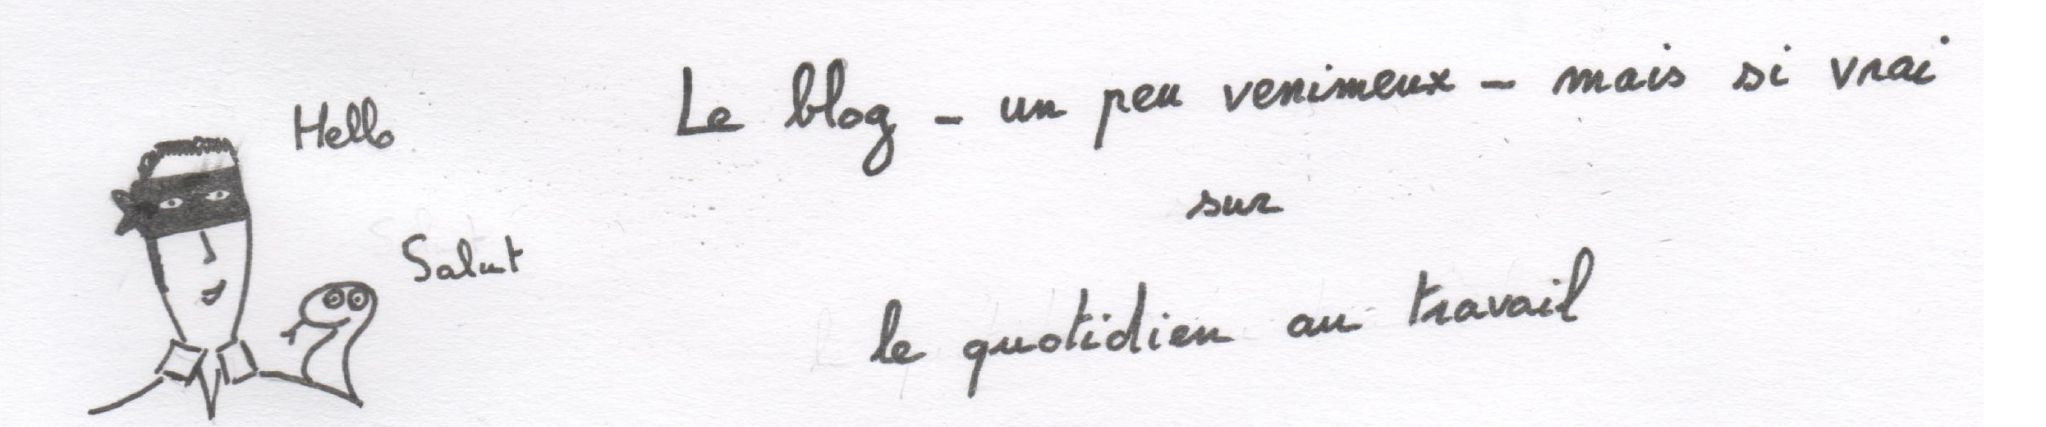 Hello
Salut
Le blog - un peu venimeux - mais si vrai
sur
le quotidien au travail